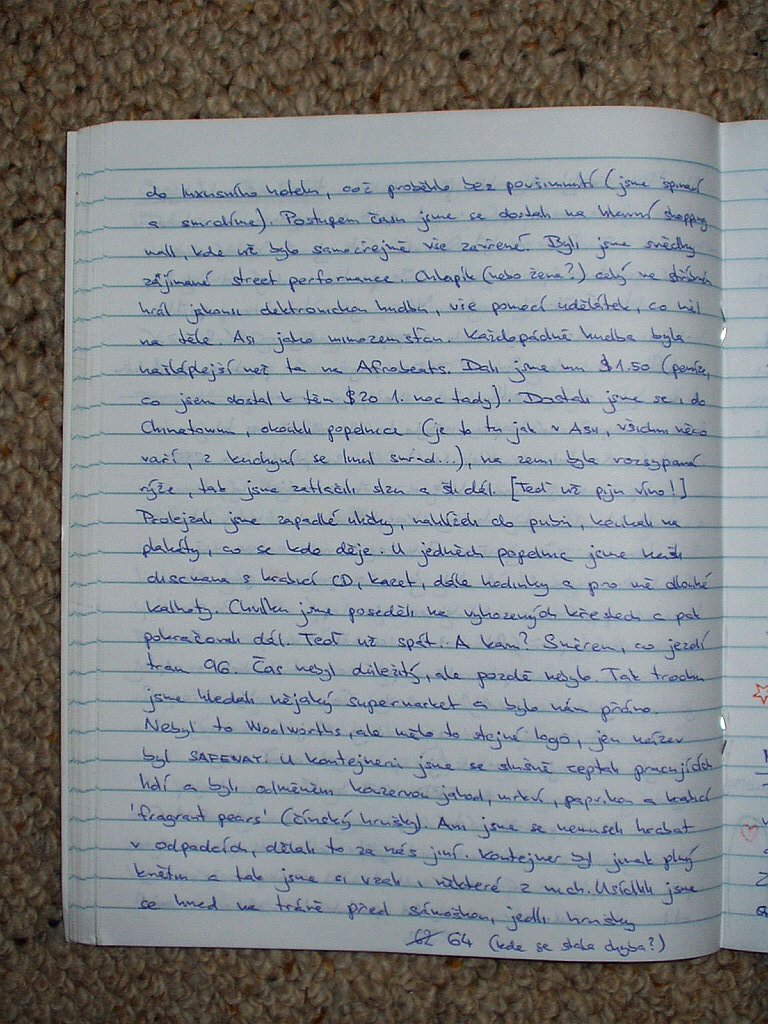 do luxusního hotelu, což proběhlo bez povšimnutí (jsme špinaví
a smrdíme). Postupem času jsme se dostali na hlavní shopping
mall, kde už bylo samozřejmě vše zavřené. Byli jsme svědky
zajímavé street performance. Chlapík (nebo žena?) celý ve stříbrném
hrál jakousi elektronickou hudbu, vše pomocí udělátek, co měl
na těle. Asi jako mimozemšťan. Každopádně hudba byla
našláplejší než ta na Afrobeats. Dali jsme mu $1.50 (peníze,
co jsem dostal k těm $20 1. noc tady). Dostali jsme se i do
Chinatownu, okoukli popelnice (je to tu jak v Asii, všichni něco
vaří, z kuchyní se linul smrad...), na zemi byla rozsypaná
rýže, tak jsme zatlačili slzu a šli dál. [Teď už piju víno!]
Prolejzali jsme zapadlé uličky, nahlíželi do pubů, koukali na
plakáty, co se kde děje. U jedněch popelnic jsme našli
discmana s krabicí CD, kazet, dále hodinky a pro mě dlouhé
kalhoty. Chvilku jsme poseděli na vyhozených křeslech a pak
pokračovali dál. Teď už spát. A kam? Směrem, co jezdí
tram 96. Čas nebyl důležitý, ale pozdě nebylo. Tak trochu
jsme hledali nějaký supermarket a bylo nám přáno.
Nebyl to Woolworths, ale mělo to stejné logo, jen název
byl SAFEWAY. U kontejnerů jsme se slušně zeptali pracujících
lidí a byli odměněni konzervou jahod, mrkví, paprikou a krabicí
'fragrant pears' (čínský hrušky). Ani jsme se nemuseli hrabat
v odpadcích, dělali to za nás jiní. Kontejner byl jinak plný
květin a tak jsme si vzali i některé z nich. Usídlili jsme
se hned na trávě před sámoškou, jedli hrušky
62 64 (kde se stala chyba?)